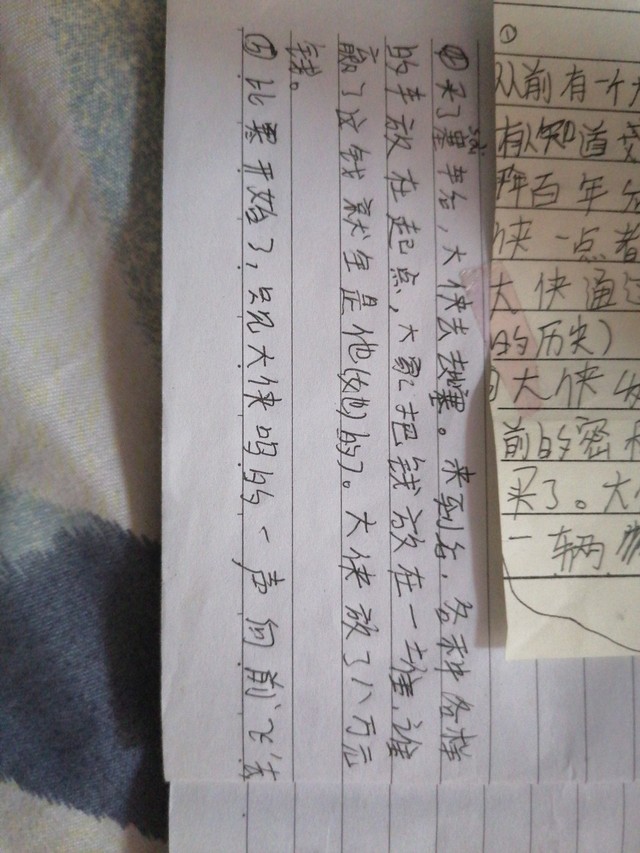 ①
从前有一个
有人知道
百年
侠一点
大侠通
的历史）
大侠
前的密
买了。大
一辆
④买了赛车后，大侠去赛。来到后，各种各样
的车放在起点，大家把钱放在一堆，谁
赢了这钱就全是他(她)的了。大侠放了八万元
钱。
⑤比赛开始了，只见大侠呜的一声向前飞